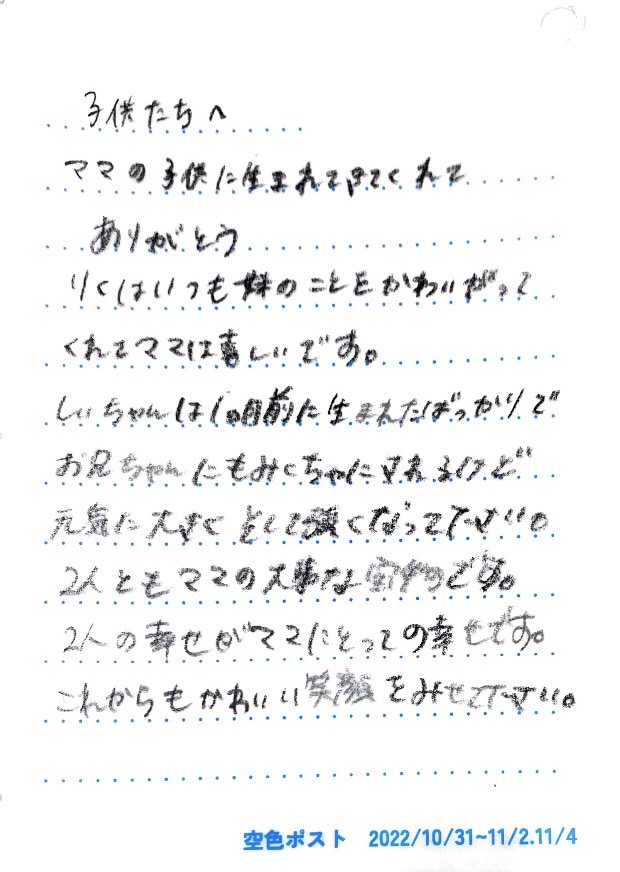 子供たちへ
ママの子供に生まれてきてくれて
ありがとう
りくはいつも妹のことをかわいがって
くれてママは喜しいです。
しいちゃんは1ヶ月前に生まれたばっかりで
お兄ちゃんにもみくちゃにされるけど
元気に大きく そして強くなって下さい。
2人ともママの大事な宝物です。
2人の幸せがママにとっての幸せです。
これからもかわいい笑顔をみせて下さい。
空色ポスト 2022/10/31~11/2.11/4